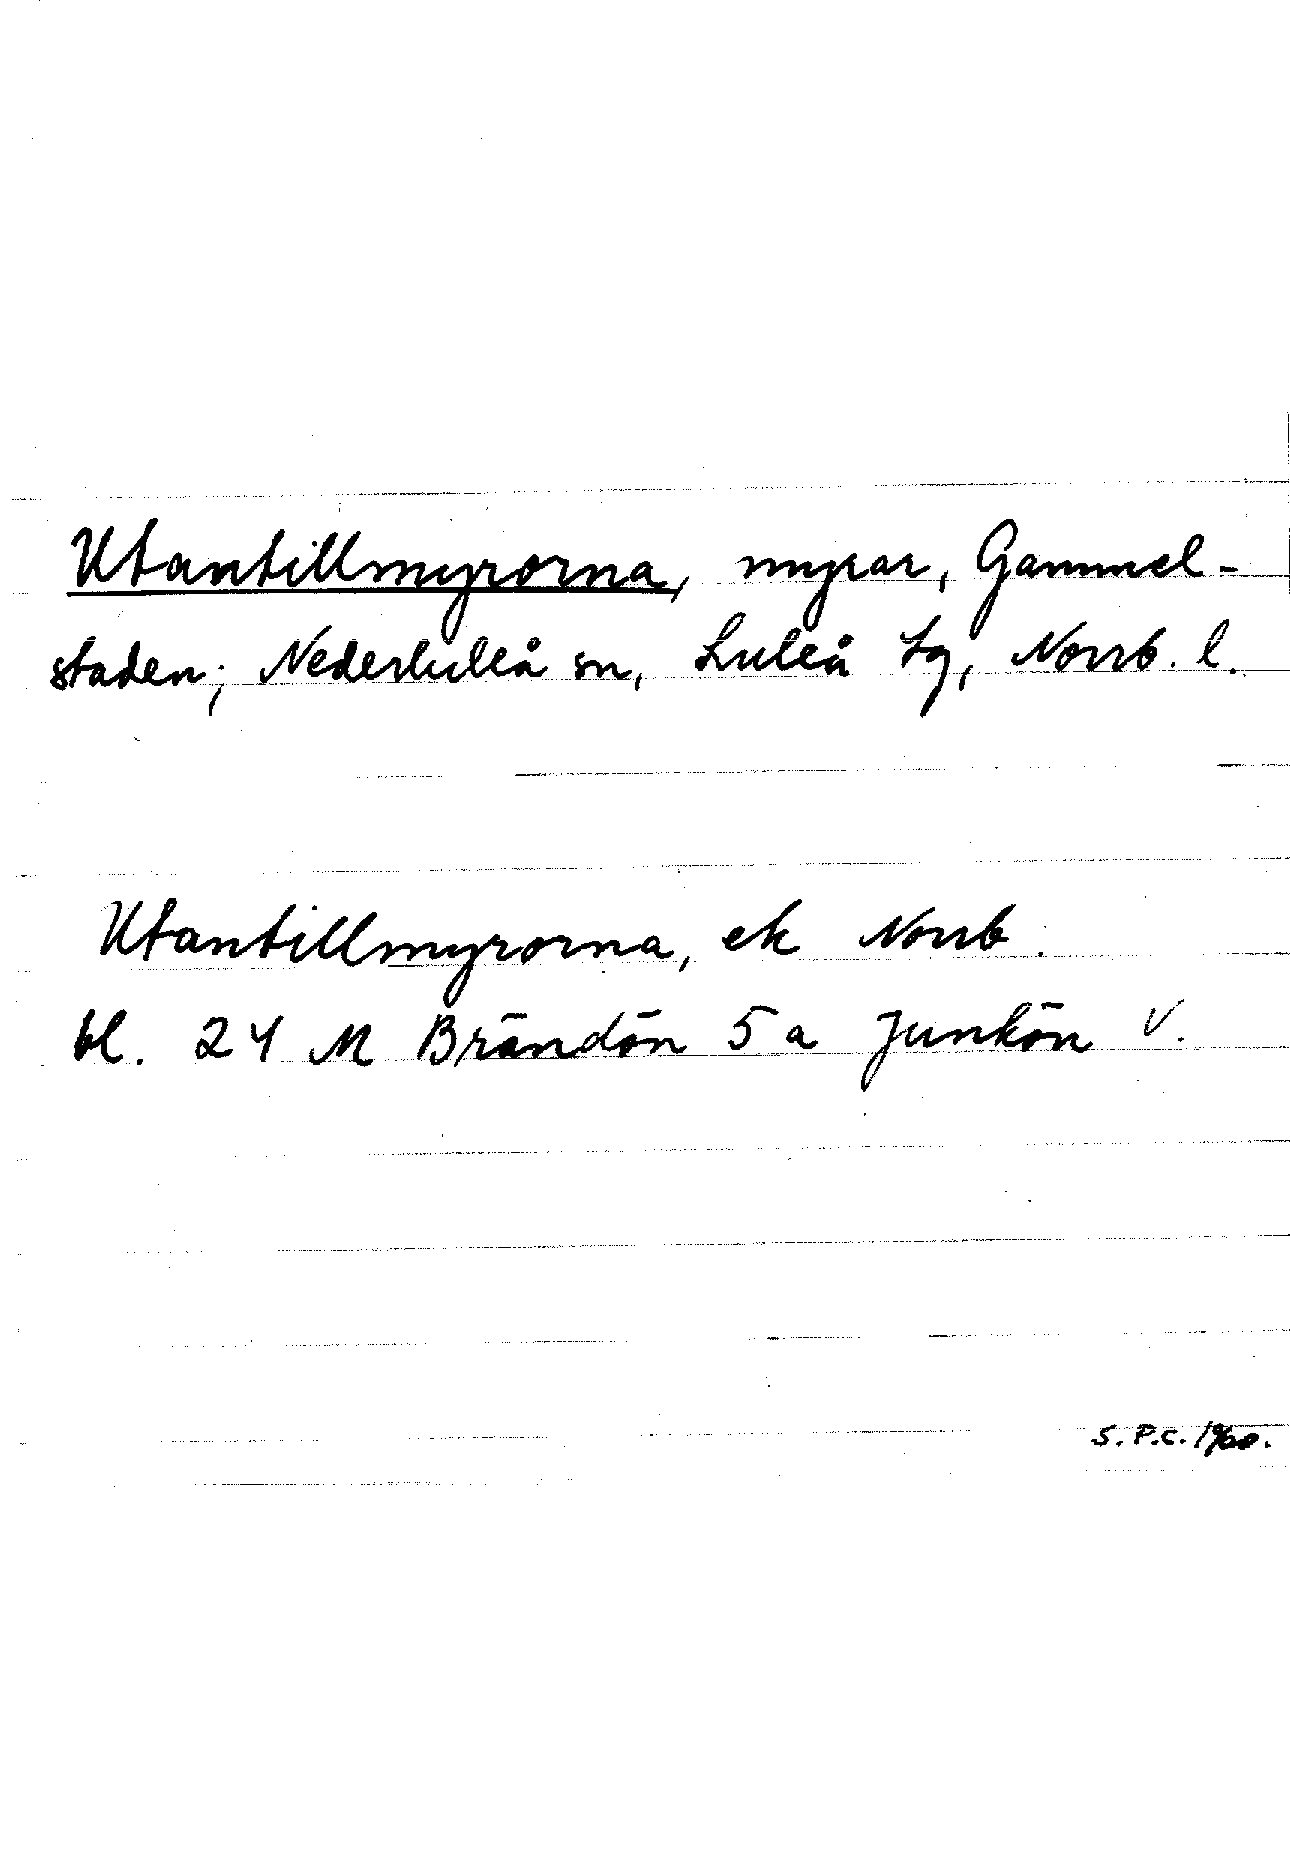 Utantillmyrorna, myrar, Gammel-
staden; Nederluleå sn, Luleå tg, Norrb. l.
Utantillmyrorna, ek Norrb.
bl. 24 M Brändön 5 a Junkön V.
S. P.C. 1960.